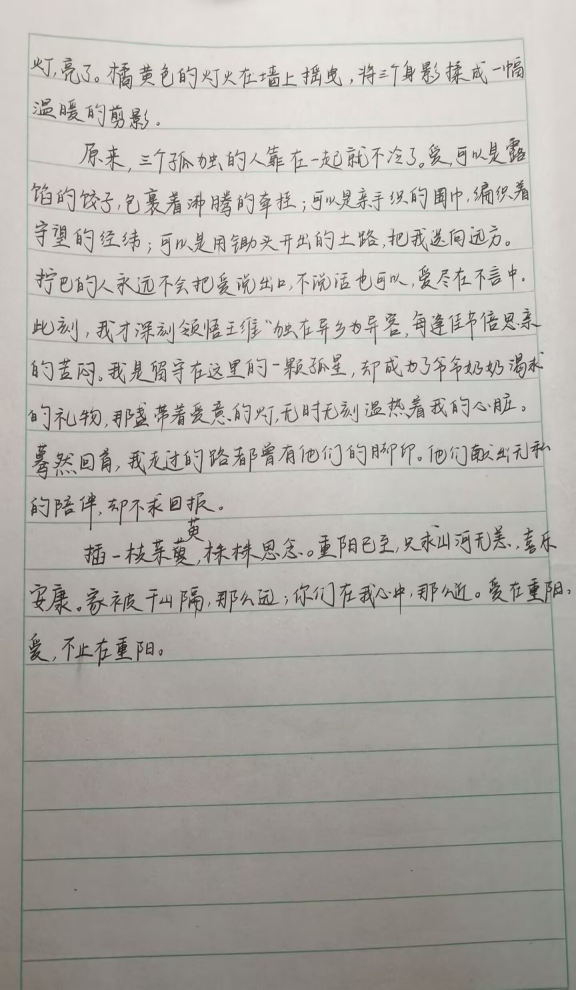 灯，亮了。橘黄色的灯火在墙上摇曳，将三个身影揉成一幅
温暖的剪影。
原来，三个孤独的人靠在一起就不冷了。爱，可以是露
馅的饺子，包裹着沸腾的牵挂；可以是亲手织的围巾，编织着
守望的经纬；可以是用锄头开出的土路，把我送向远方。
拧巴的人永远不会把爱说出口，不说话也可以，爱尽在不言中。
此刻，我才深刻领悟王维“独在异乡为异客，每逢佳节倍思亲
的苦闷。我是留守在这里的一颗孤星，却成为了爷爷奶奶渴求
的礼物，那盏带着爱意的灯，无时无刻温热着我的心脏。
蓦然回首，我走过的路都曾有他们的脚印。他们献出无私
的陪伴，却不求回报。
萸
插一枝茱萸，株株思念。重阳已至，只求山河无恙，喜乐
安康。家被千山隔，那么远；你们在我心中，那么近。爱在重阳，
爱，不止在重阳。